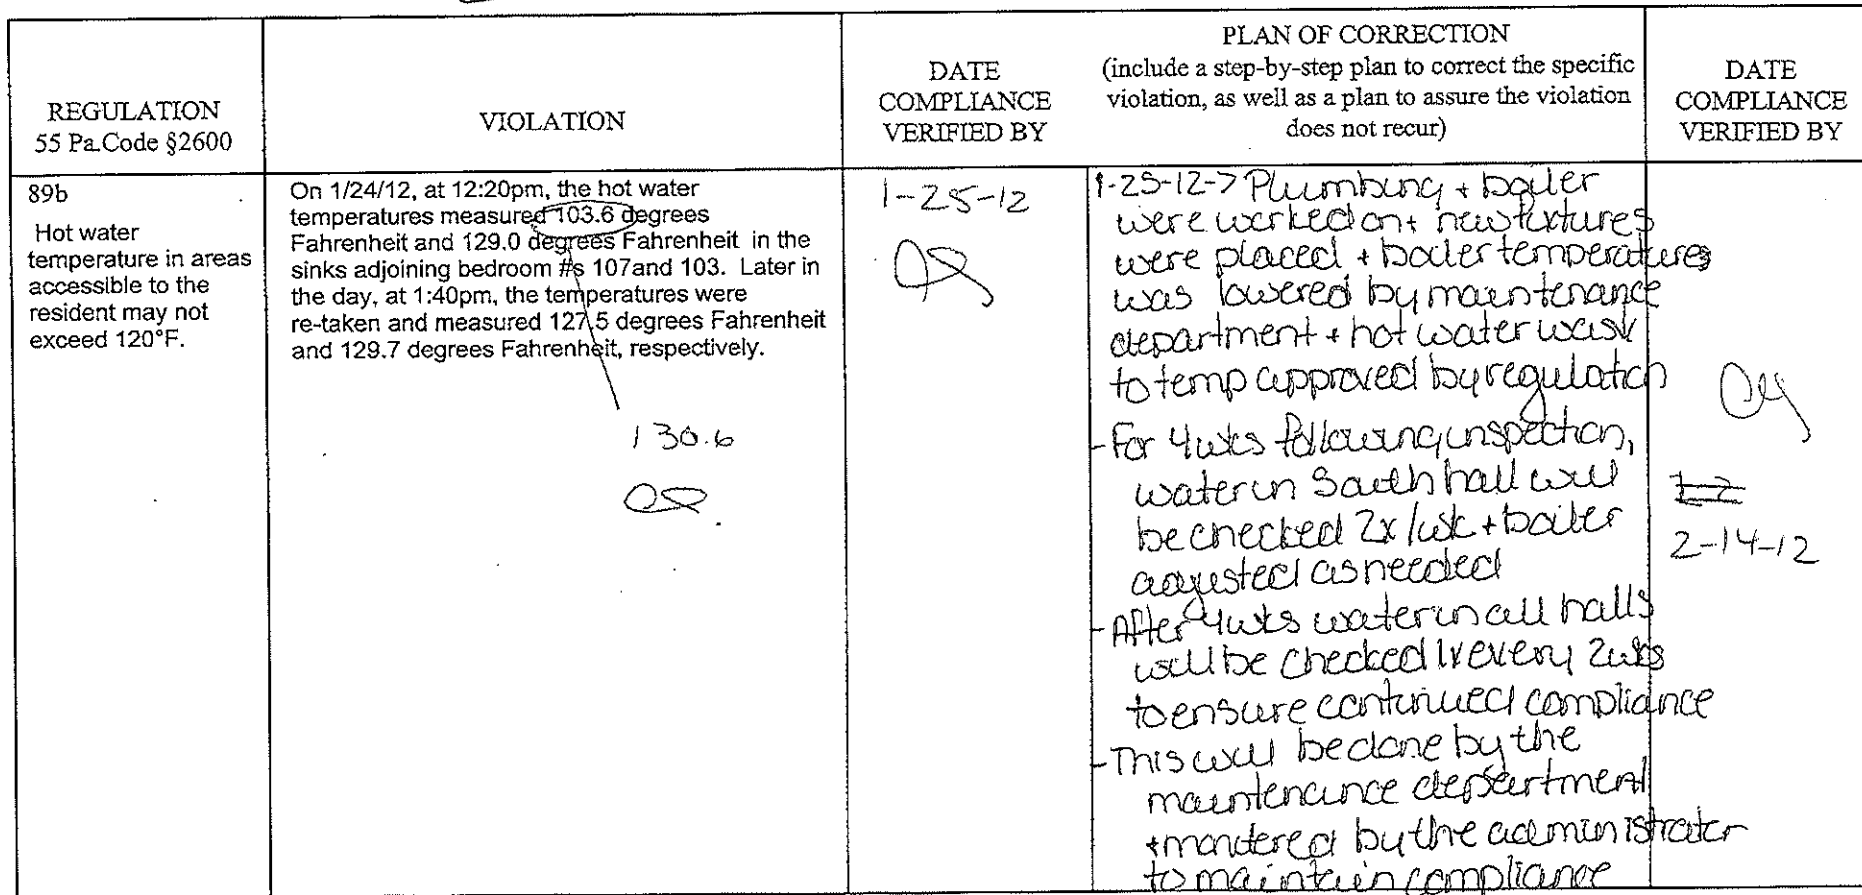 REGULATION
55 Pa.Code §2600
VIOLATION
DATE
COMPLIANCE
VERIFIED BY
PLAN OF CORRECTION
(include a step-by-step plan to correct the specific
violation, as well as a plan to assure the violation
does not recur)
DATE
COMPLIANCE
VERIFIED BY
89b
Hot water
temperature in areas
accessible to the
resident may not
exceed 120°F.
On 1/24/12, at 12:20pm, the hot water
temperatures measured 103.6 degrees
Fahrenheit and 129.0 degrees Fahrenheit in the
sinks adjoining bedroom #s 107and 103. Later in
the day, at 1:40pm, the temperatures were
re-taken and measured 127.5 degrees Fahrenheit
and 129.7 degrees Fahrenheit, respectively.
130.6
1-25-12
1-25-12-> Plumbing + boiler
were worked on + new fixtures
were placed + boiler temperatures
was lowered by maintenance
department + hot water was
to temp approved by regulation
- For 4wks following inspection,
water in South hall will
be checked 2x/wk + boiler
adjusted as needed
- After 4wks water in all halls
will be checked 1x every 2wks
to ensure continued compliance
- This will be done by the
maintenance department
+ monitered by the administrator
to maintain compliance
2-14-12